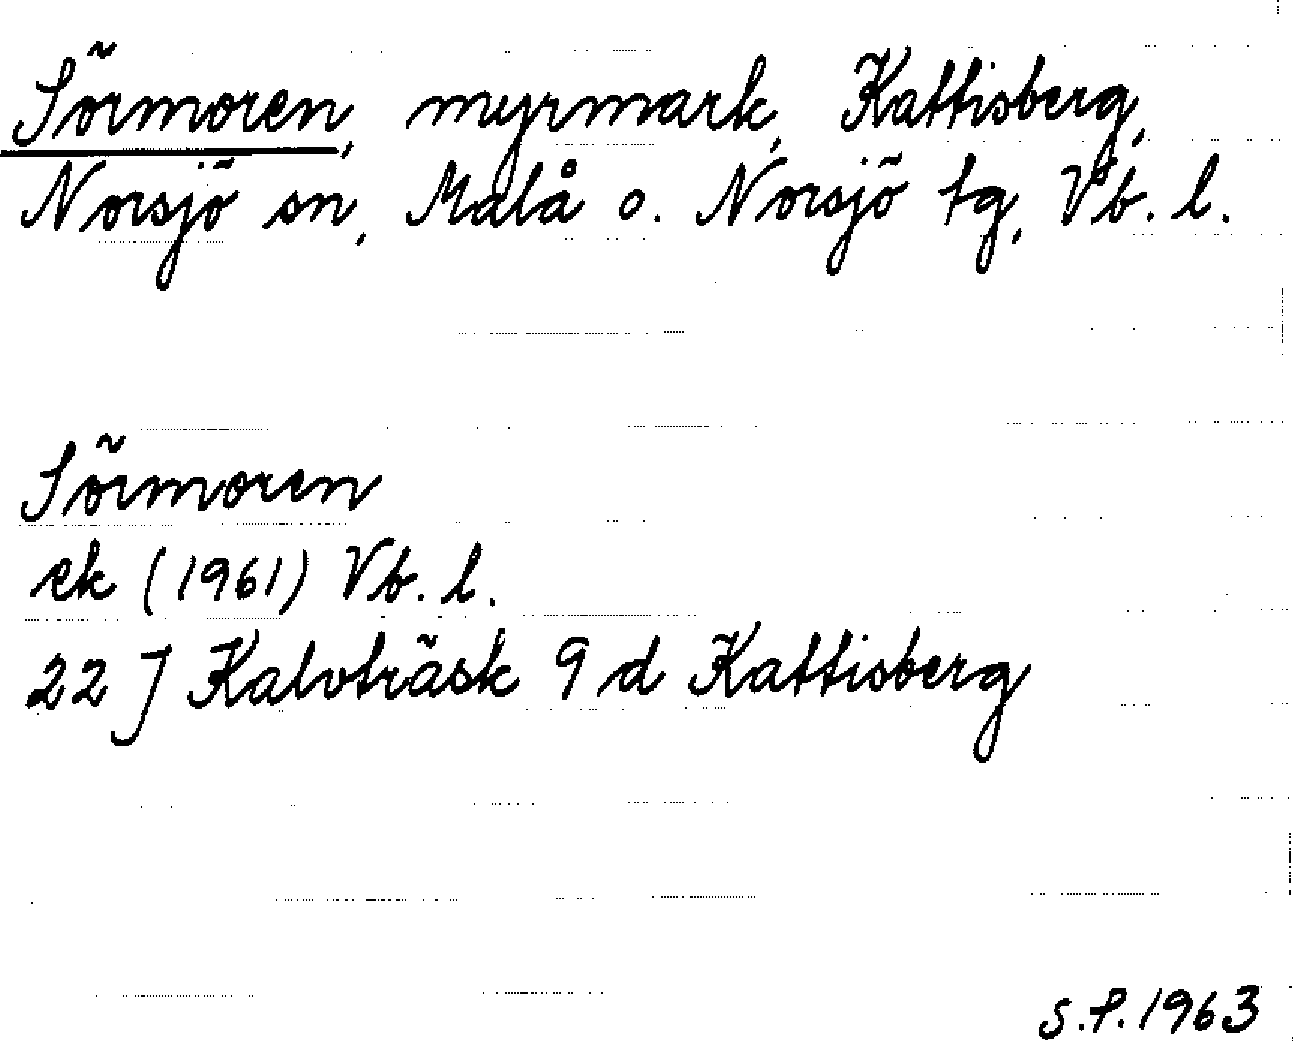 Sörmoren, myrmark, Kattisberg,
Norsjö sn, Malå o. Norsjö tg, Vb. l.
Sörmoren
ek (1961) Vb. l.
22 J Kalvträsk 9 d Kattisberg
S.P. 1963